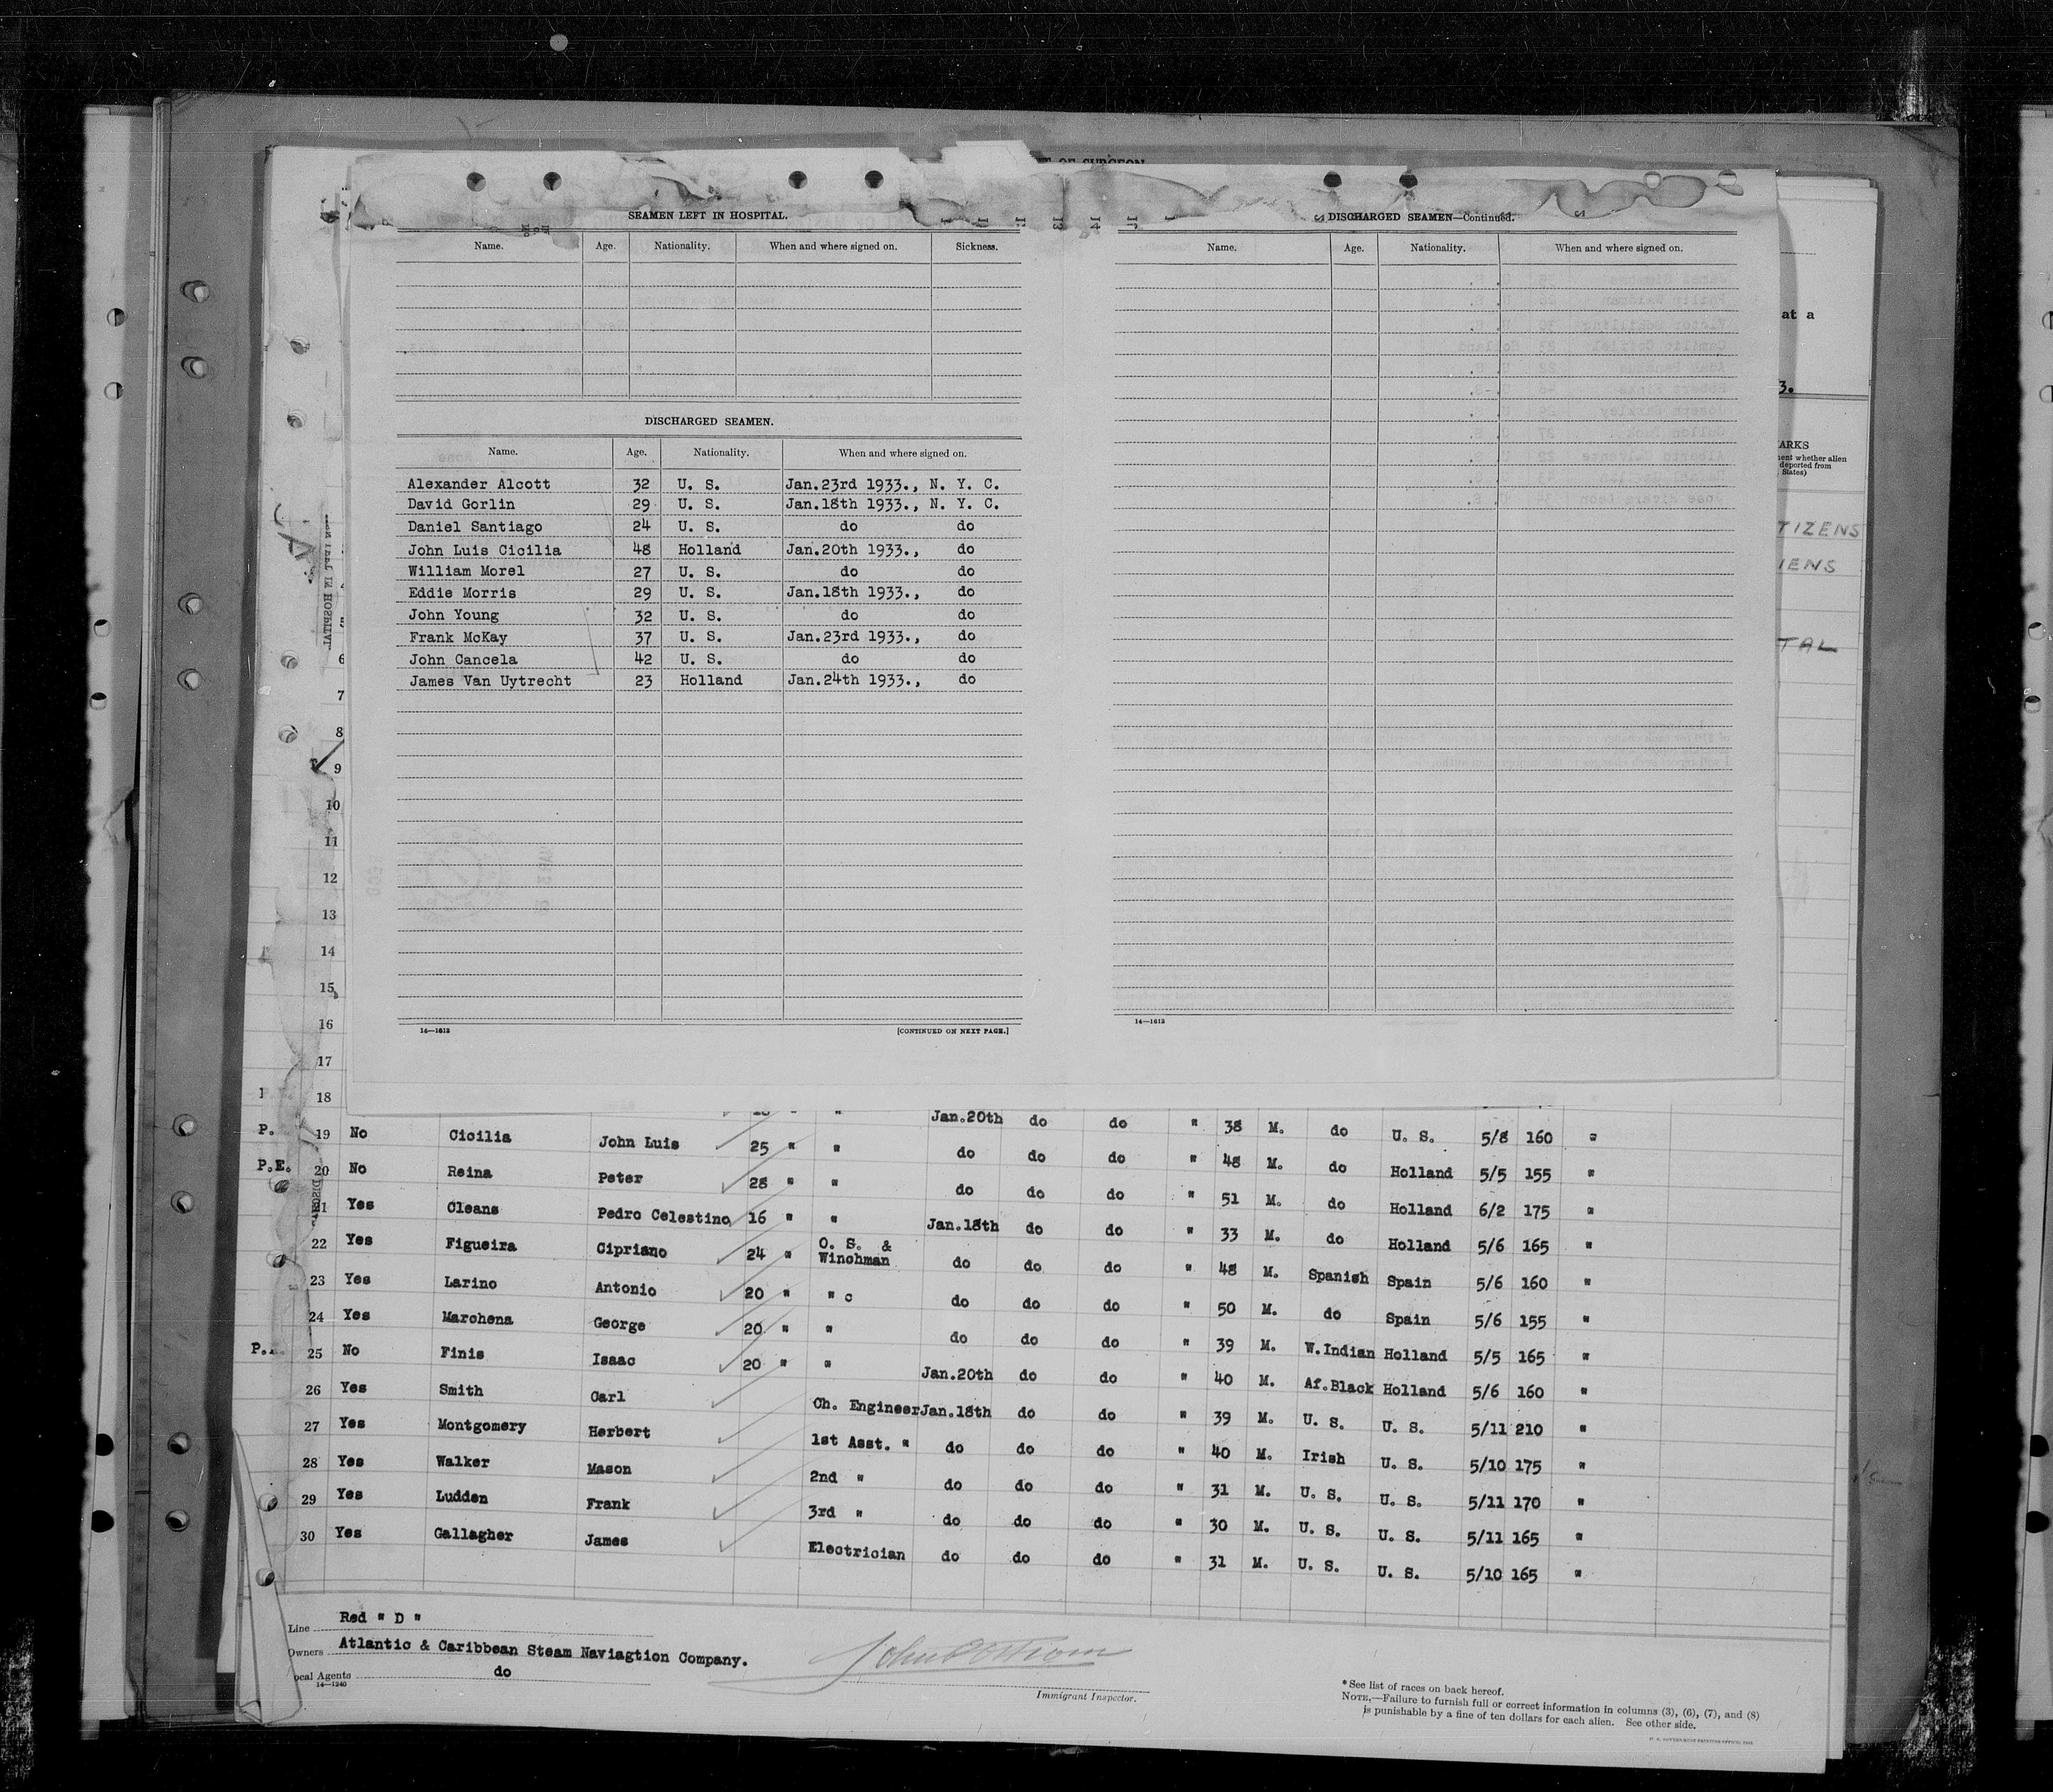 OF SURGEON
SEAMEN LEFT IN HOSPITAL.
Name. Age. Nationality. When and where signed on. Sickness.
DISCHARGED SEAMEN.
Name. Age. Nationality. When and where signed on.
Alexander Alcott 32 U. S. Jan.23rd 1933., N. Y. C.
David Gorlin 29 U. S. Jan.18th 1933., N. Y. C.
Daniel Santiago 24 U. S. do do
John Luis Cicilia 48 Holland Jan.20th 1933., do
William Morel 27 U. S. do do
Eddie Morris 29 U. S. Jan.18th 1933., do
John Young 32 U. S. do do
Frank McKay 37 U. S. Jan.23rd 1933., do
John Cancela 42 U. S. do do
James Van Uytrecht 23 Holland Jan.24th 1933., do
14—1613 [CONTINUED ON NEXT PAGE.]
DISCHARGED SEAMEN—Continued.
Name. Age. Nationality. When and where signed on.
14—1613
at a
3.
ARKS
ent whether alien
deported from
States)
TIZENS
IENS
TAL
6
7
8
9
10
11
12
13
14
15
16
17
18
Jan.20th do do " 38 M. do U. S. 5/8 160 "
P. 19 No Cicilia John Luis 25 " " do do do " 48 M. do Holland 5/5 155 "
P.E. 20 No Reina Peter 28 " " do do do " 51 M. do Holland 6/2 175 "
21 Yes Cleans Pedro Celestino 16 " " Jan.18th do do " 33 M. do Holland 5/6 165 "
22 Yes Figueira Cipriano 24 " O. S. & Winchman do do do " 48 M. Spanish Spain 5/6 160 "
23 Yes Larino Antonio 20 " " c do do do " 50 M. do Spain 5/6 155 "
24 Yes Marchena George 20 " " do do do " 39 M. W.Indian Holland 5/5 165 "
25 No Finis Isaac 20 " " Jan.20th do do " 40 M. Af.Black Holland 5/6 160 "
26 Yes Smith Carl Ch. Engineer Jan.18th do do " 39 M. U. S. U. S. 5/11 210 "
27 Yes Montgomery Herbert 1st Asst. " do do do " 40 M. Irish U. S. 5/10 175 "
28 Yes Walker Mason 2nd " do do do " 31 M. U. S. U. S. 5/11 170 "
29 Yes Ludden Frank 3rd " do do do " 30 M. U. S. U. S. 5/11 165 "
30 Yes Gallagher James Electrician do do do " 31 M. U. S. U. S. 5/10 165 "
Line Red " D "
Owners Atlantic & Caribbean Steam Naviagtion Company.
ocal Agents do
14—1240
Immigrant Inspector.
* See list of races on back hereof.
NOTE.—Failure to furnish full or correct information in columns (3), (6), (7), and (8)
is punishable by a fine of ten dollars for each alien. See other side.